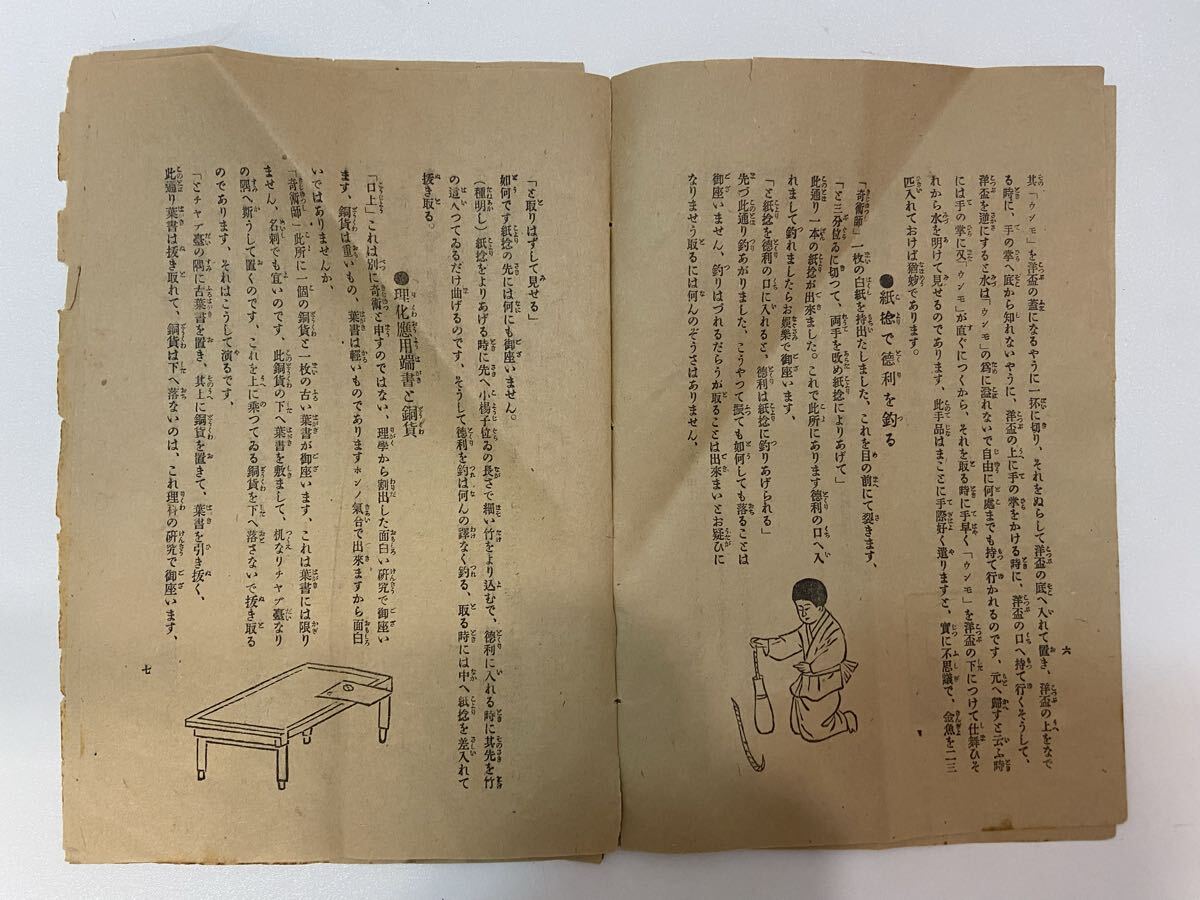 六
其「ウンモ」を洋盃の蓋になるやうに一抔に切り、それをぬらして洋盃の底へ入れて置き、洋盃の上をなで
る時に、手の掌へ底から知れないやうに、洋盃の上に手の掌をかける時に、洋盃の口へ持て行くそうして、
洋盃を逆にすると水は「ウンモ」の爲に溢れないで自由に何處までも持て行かれるのです、元へ歸すと云ふ時
には手の掌に又「ウンモ」が直ぐにつくから、それを取る時に手早く「ウンモ」を洋盃の下につけて仕舞ひそ
れから水を明けて見せるのであります、此手品はまことに手際好く遣りますと、實に不思議で、金魚を二三
匹入れておけば猶妙であります。
●紙捻で德利を釣る
「奇術師」一枚の白紙を持出たしました、これを目の前にて裂きます、
「と三分位ゐに切つて、兩手を改め紙捻によりあげて」
此通り一本の紙捻が出來ました。これで此所にあります德利の口へ入
れまして釣れましたらお娯樂で御座います、
「と紙捻を德利の口に入れると、德利は紙捻に釣りあげられる」
先づ此通り釣あがりました、こうやつて振ても如何しても落ることは
御座いません、釣りはづれるだらうが取ることは出來まいとお疑ひに
なりませう取るには何んのぞうさはありません、
「と取りはずして見せる」
如何です紙捻の先には何にも御座いません。
(種明し)紙捻をよりあげる時に先へ小楊子位ゐの長さで細い竹をより込むで、德利に入れる時に其先を竹
の這へつてゐるだけ曲げるのです、そうして德利を釣は何んの譯なく釣る、取る時には中へ紙捻を差入れて
拔き取る。
●理化應用端書と銅貨
「口上」これは別に奇術と申すのではない、理學から割出した面白い硏究で御座い
ます、銅貨は重いもの、葉書は輕いものでありますホンノ氣合で出來ますから面白
いではありませんか、
「奇術師」此所に一個の銅貨と一枚の古い葉書が御座います、これは葉書には限り
ません、名刺でも宜いのです、此銅貨の下へ葉書を敷まして、机なりチヤブ臺なり
の隅へ斯うして置くのです、これを上に乘つてゐる銅貨を下へ落さないで拔き取る
のであります、それはこうして演るです、
「とチヤブ臺の隅に古葉書を置き、其上に銅貨を置きて、葉書を引き拔く、
此通り葉書は拔き取れて、銅貨は下へ落ないのは、これ理科の硏究で御座います、
七